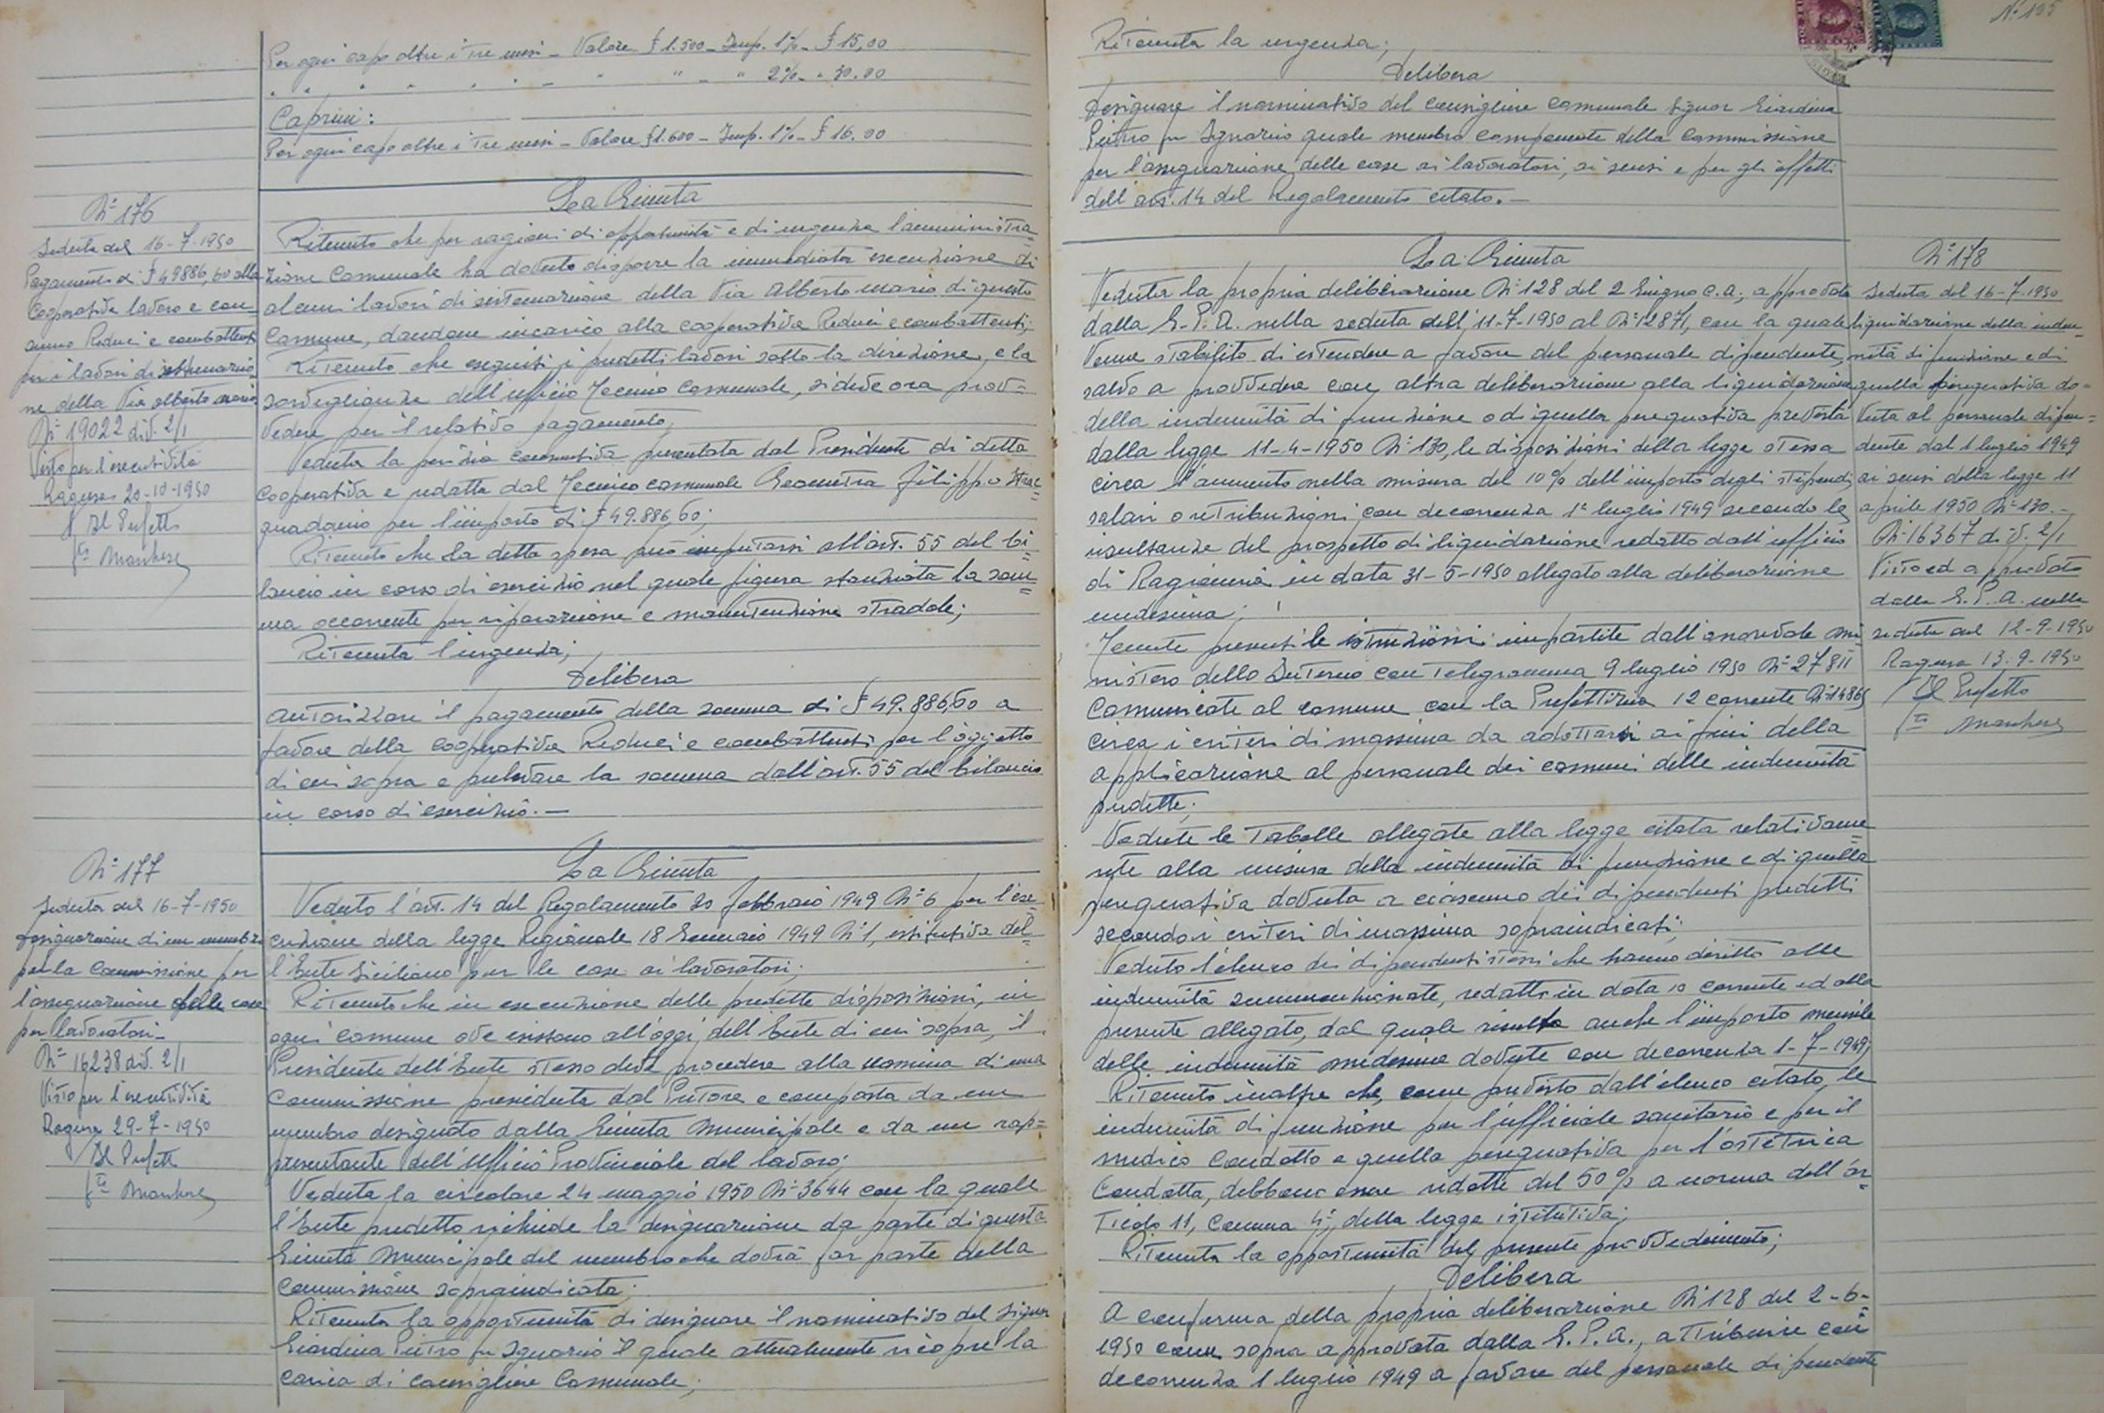 Per ogni capo oltre i tre mesi - Valore £ 1.500 - Imp. 1% - £ 15,00
" " " " " " - " " - " 2% - " 30.00
Caprini:
Per ogni capo oltre i tre mesi - Valore £ 1.600 - Imp. 1% - £ 16.00
N° 176
Seduta del 16-7-1950
Pagamento di £ 49886,60 alla
Cooperativa lavoro e con
sumo Reduci e combattenti
per i lavori di sistemazio
ne della Via Alberto Mario
N° 19022 div. 2/1
Visto per l'esecutività
Ragusa 20-10-1950
p. Il Prefetto
La Giunta
Ritenuto che per ragioni di opportunità e di urgenza l'amministra=
zione Comunale ha dovuto disporre la immediata esecuzione di
alcuni lavori di sistemazione della Via Alberto Mario di questo
Comune, dandone incarico alla cooperativa Reduci e combattenti;
Ritenuto che eseguiti i predetti lavori sotto la direzione, e la
sorveglianza dell'ufficio Tecnico Comunale, si deve ora prov=
vedere per il relativo pagamento;
Veduta la perizia consuntiva presentata dal Presidente di detta
cooperativa e redatta dal Tecnico comunale Geometra Filippo
per l'importo di £ 49.886,60;
Ritenuto che la detta spesa può imputarsi all'art. 55 del bi=
lancio in corso di esercizio nel quale figura stanziata la som=
ma occorrente per riparazione e manutenzione stradale;
Ritenuta l'urgenza;
Delibera
Autorizzare il pagamento della somma di £ 49.886,60 a
favore della cooperativa Reduci e combattenti per l'oggetto
di cui sopra e prelevare la somma dall'art. 55 del bilancio
in corso di esercizio. -
N° 177
Seduta del 16-7-1950
Designazione di un membro
per la Commissione per
l'assegnazione delle case
per lavoratori -
N° 16238 div. 2/1
Visto per l'esecutività
Ragusa 29-7-1950
Il Prefetto
La Giunta
Veduto l'art. 14 del Regolamento 20 febbraio 1949 N° 6 per l'ese=
cuzione della legge Regionale 18 Gennaio 1949 N° 1, istitutiva del=
l'Ente Siciliano per le case ai lavoratori;
Ritenuto che in esecuzione delle predette disposizioni, in
ogni comune ove alloggi dell'Ente di cui sopra, il
Presidente dell'Ente stesso deve procedere alla nomina di una
Commissione presieduta dal Pretore e composta da un
membro designato dalla Giunta Municipale e da un rap=
presentante dell'Ufficio Provinciale del lavoro;
Veduta la circolare 24 maggio 1950 N° 3644 con la quale
l'Ente predetto richiede la designazione da parte di questa
Giunta Municipale del membro che dovrà far parte della
Commissione sopraindicata;
Ritenuta la opportunità di designare il nominativo del signor
Giardina Pietro fu Ignazio il quale attualmente ricopre la
carica di Consigliere Comunale;
N° 195
Ritenuta la urgenza;
Delibera
Designare il nominativo del consigliere comunale signor Giardina
Pietro fu Ignazio quale membro componente della Commissione
per l'assegnazione delle case ai lavoratori, ai sensi e per gli effetti
dell'art. 14 del Regolamento citato. -
La Giunta
Veduta la propria deliberazione N° 128 del 2 Giugno c.a., approvata
dalla G.P.A. nella seduta dell'11-7-1950 al N° 12871, con la quale
venne stabilito di estendere a favore del personale dipendente,
salvo a provvedere con altra deliberazione alla liquidazione
della indennità di funzione o di quella perequativa prevista
dalla legge 11-4-1950 N° 130, le disposizioni della legge stessa
circa l'aumento nella misura del 10% dell'importo degli stipendi
salari o retribuzioni con decorrenza 1° luglio 1949 secondo le
risultanze del prospetto di liquidazione redatto dall'ufficio
di Ragioneria in data 31-5-1950 allegato alla deliberazione
medesima;
Tenute presenti le istruzioni impartite dall'onorevole Mi=
nistero dello Interno con telegramma 9 luglio 1950 N° 27811
Comunicate al comune con la Prefettizia 12 corrente N° 14865
circa i criteri di massima da adottarsi ai fini della
applicazione al personale dei comuni delle indennità
predette;
Vedute le Tabelle allegate alla legge citata relativame=
nte alla misura della indennità di funzione e di quella
perequativa dovuta a ciascuno dei dipendenti predetti
secondo i criteri di massima sopraindicati;
Veduto l'elenco dei dipendenti stessi che hanno diritto alle
indennità summenzionate, redatto in data 10 corrente ed alla
presente allegato, dal quale risulta anche l'importo mensile
delle indennità medesime dovute con decorrenza 1-7-1949;
Ritenuto inoltre che, come previsto dall'elenco citato, le
indennità di funzione per l'ufficiale sanitario e per il
medico Condotto e quella perequativa per l'ostetrica
Condotta, debbono essere ridotte del 50% a norma dell'ar=
ticolo 11, Comma 4°, della legge istitutiva;
Ritenuta la opportunità del presente provvedimento;
Delibera
A conferma della propria deliberazione N° 128 del 2-6-
1950 come sopra approvata dalla G.P.A., attribuire con
decorrenza 1 luglio 1949 a favore del personale dipendente
N° 178
Seduta del 16-7-1950
liquidazione della inden=
nità di funzione e di
quella perequativa do=
vuta al personale dipen=
dente dal 1 luglio 1949
ai sensi della legge 11
aprile 1950 N° 130. -
N° 16367 div. 2/1
Visto ed approvato
dalla G.P.A. nella
seduta del 12-9-1950
Ragusa 13-9-1950
Il Prefetto